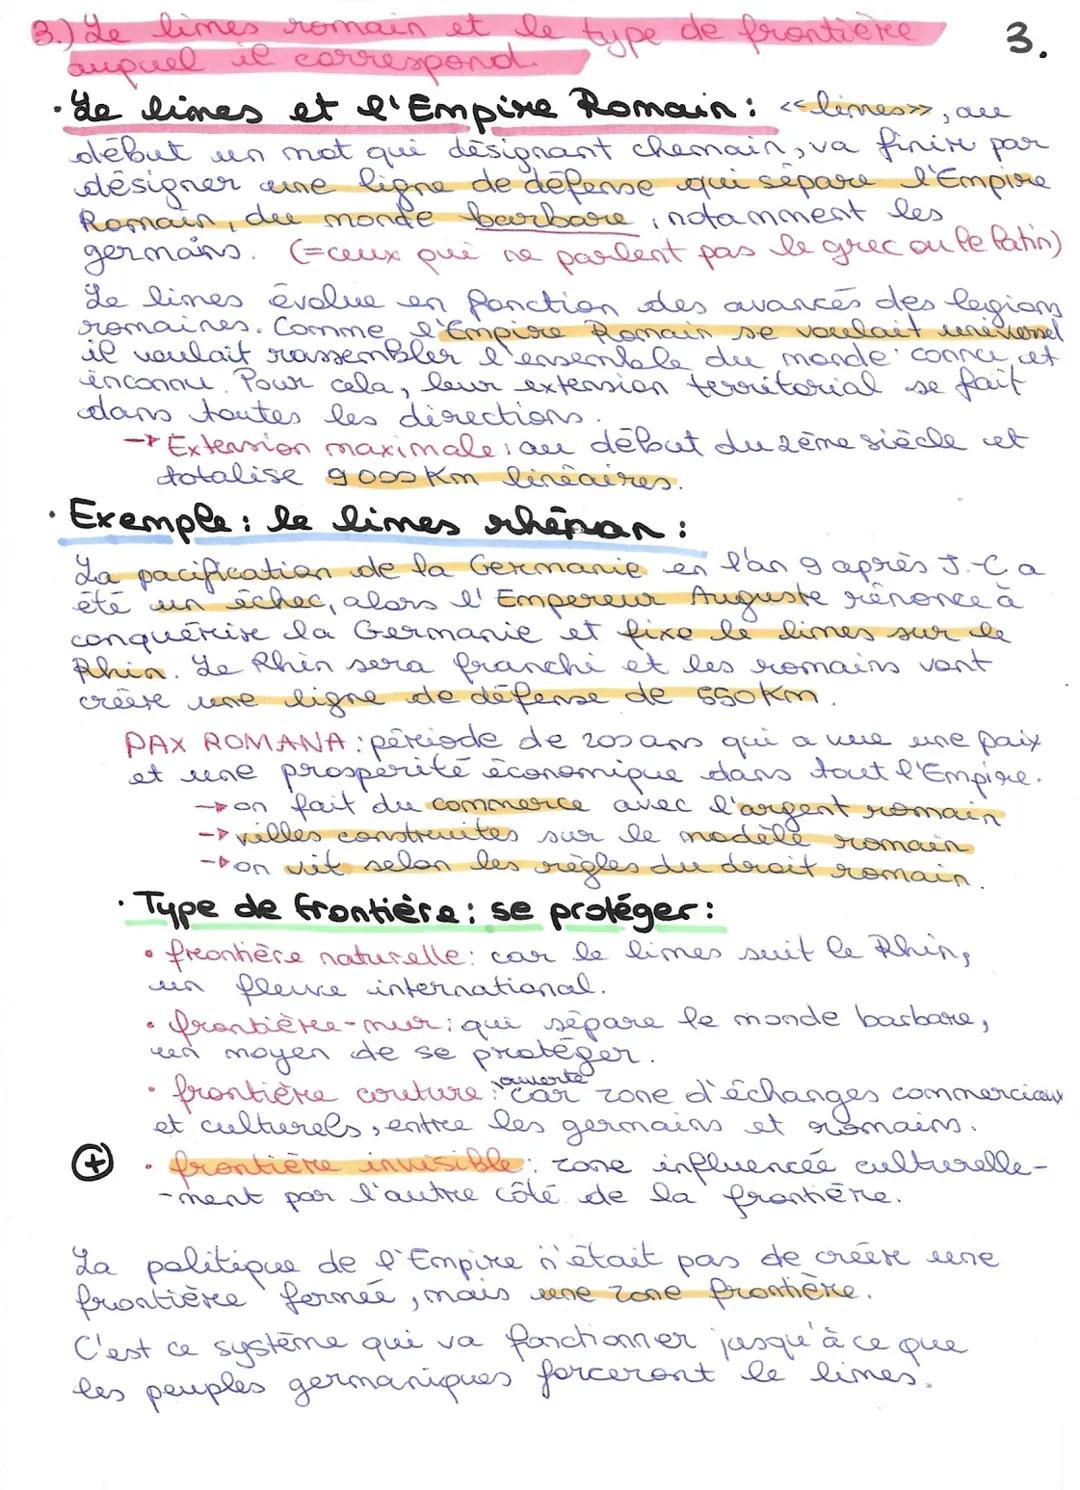 3.) Le limes romain et le type de frontière
3.
auquel il correspond.
· Le limes et l'Empire Romain : <<limes>>, au
début un mot qui désignant chemain, va finir par
désigner une ligne de défense qui sépare l'Empire
Romain, du monde barbare, notamment les
germains. (=ceux qui ne parlent pas le grec ou le latin)
Le limes évolue en fonction des avancés des légions
romaines. Comme l'Empire Romain se voulait universel
il voulait rassembler l'ensemble du monde connu et
inconnu. Pour cela, leur extension territorial se fait
dans toutes les directions.
→ Extension maximale : au début du 2ème siècle et
totalise 9000 Km linéaires.
· Exemple : le limes rhénan :
La pacification de la Germanie en l'an 9 après J.-C a
été un échec, alors l'Empereur Auguste rénonce à
conquérire la Germanie et fixe le limes sur le
Rhin. Le Rhin sera franchi et les romains vont
créère une ligne de défense de 550 Km.
PAX ROMANA : période de 200 ans qui a vue une paix
et une prospérité économique dans tout l'Empire.
→ on fait du commerce avec l'argent romain
→ villes construites sur le modèle romain
→ on vit selon les règles du droit romain.
· Type de frontière : se protéger :
• frontière naturelle : car le limes suit le Rhin,
un fleuve international.
• frontière-mur : qui sépare le monde barbare,
un moyen de se protéger.
ouverte
• frontière couture : car zone d'échanges commerciaux
et culturels, entre les germains et romains.
+ • frontière invisible : zone influencée culturelle-
-ment par l'autre côté de la frontière.
La politique de l'Empire n'était pas de créère une
frontière fermée, mais une zone frontière.
C'est ce système qui va fonctionner jusqu'à ce que
les peuples germaniques forceront le limes.